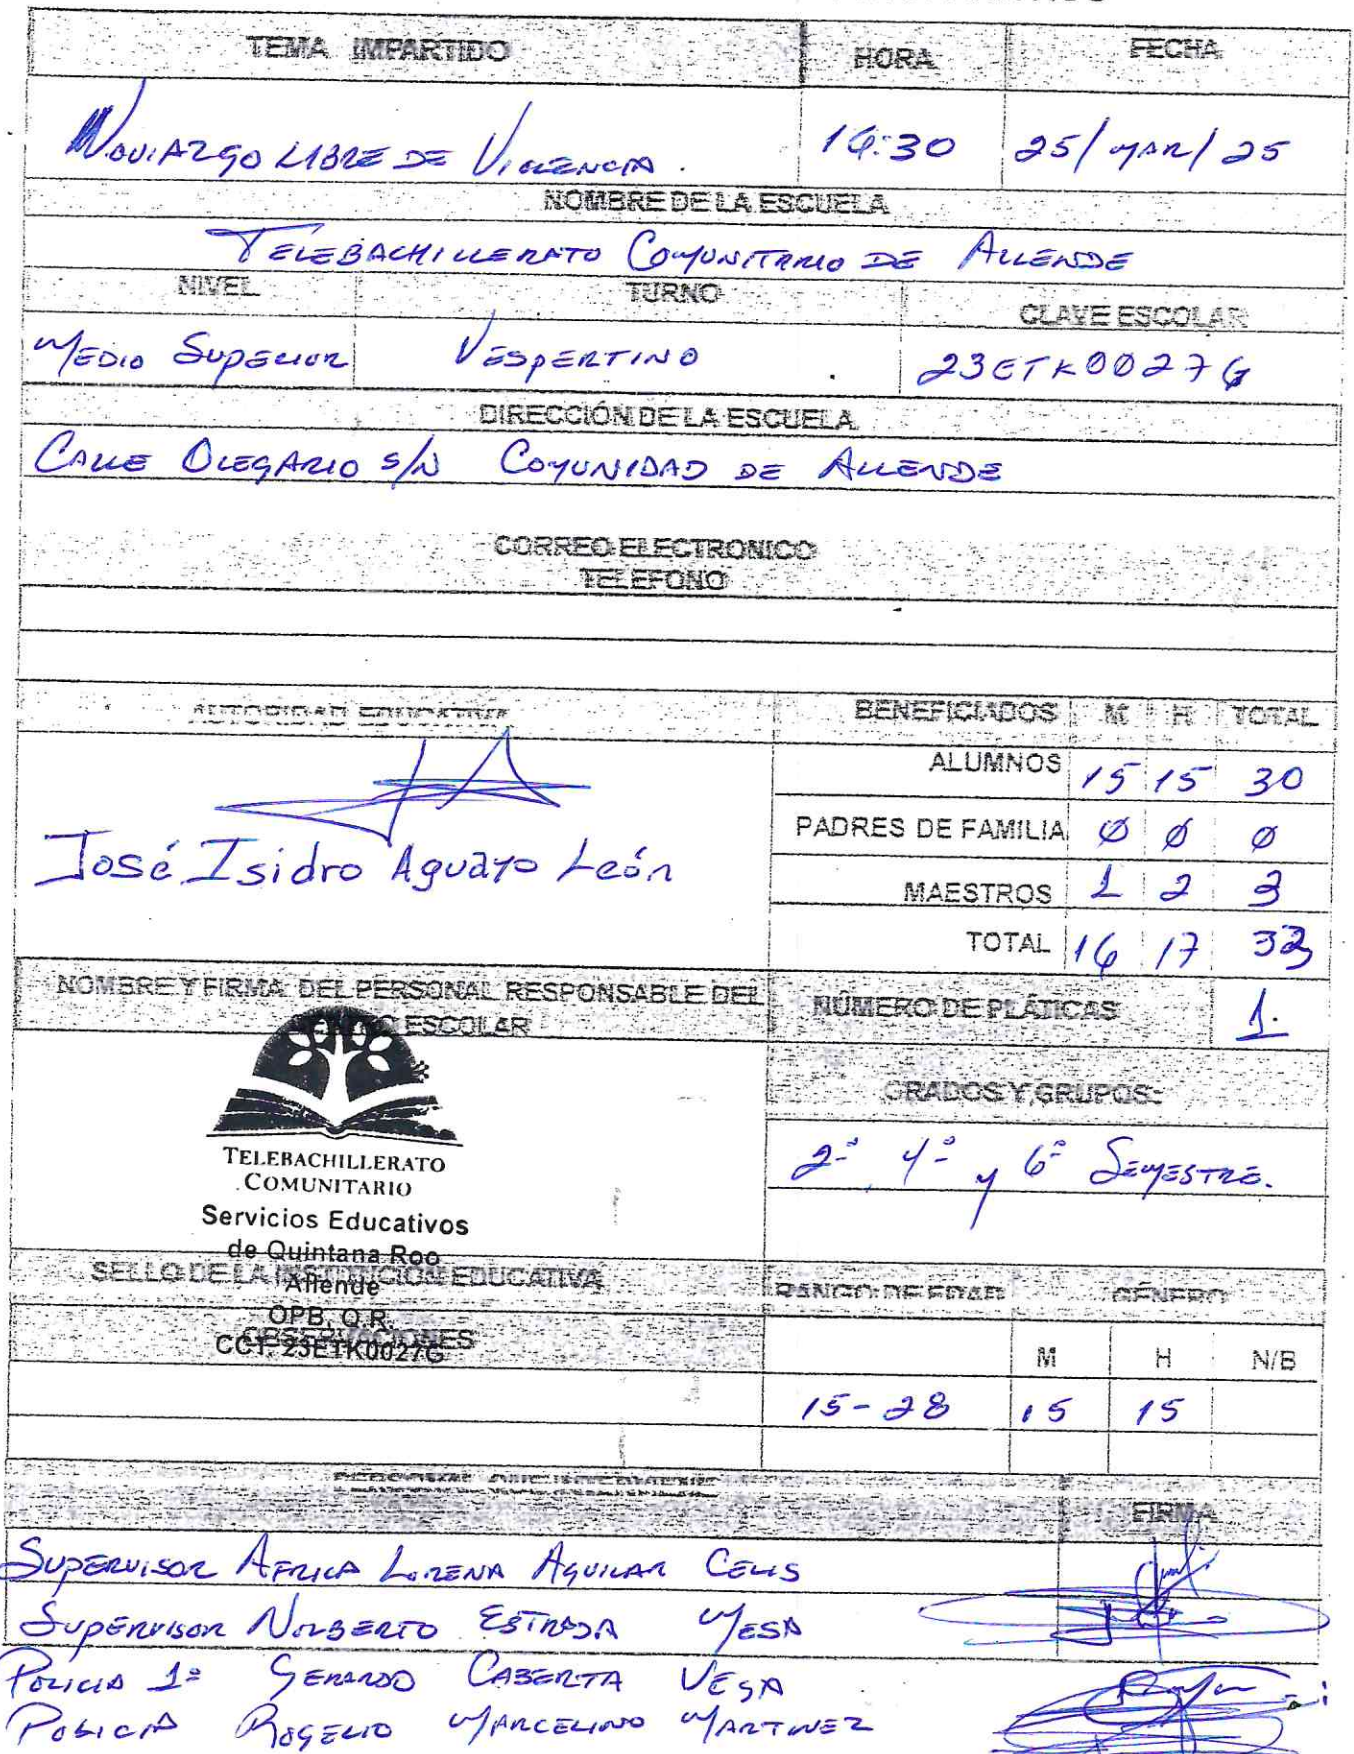 TEMA IMPARTIDO HORA FECHA
NOVIAZGO LIBRE DE VIOLENCIA. 16:30 25/MAR/25
NOMBRE DE LA ESCUELA
TELEBACHILLERATO COMUNITARIO DE ALLENDE
NIVEL TURNO CLAVE ESCOLAR
MEDIO SUPERIOR VESPERTINO 23ETK0027G
DIRECCIÓN DE LA ESCUELA
CALLE OLEGARIO S/N COMUNIDAD DE ALLENDE
CORREO ELECTRONICO
TELEFONO
AUTORIDAD EDUCATIVA BENEFICIADOS M H TOTAL
ALUMNOS 15 15 30
PADRES DE FAMILIA Ø Ø Ø
José Isidro Aguayo León
MAESTROS 1 2 3
TOTAL 16 17 33
NOMBRE Y FIRMA DEL PERSONAL RESPONSABLE DEL
ESCOLAR
NÚMERO DE PLÁTICAS 1.
GRADOS Y GRUPOS:
2º 4º y 6º SEMESTRE.
TELEBACHILLERATO
COMUNITARIO
Servicios Educativos
de Quintana Roo
SELLO DE LA INSTITUCIÓN EDUCATIVA RANGO DE EDAD GÉNERO
Allende
OPB, Q.R.
OBSERVACIONES
CCT. 23ETK0027G
M H N/B
15-28 15 15
PERSONAL QUE INTERVIENE
FIRMA
SUPERVISOR AFRICA LORENA AGUILAR CELIS
SUPERVISOR NORBERTO ESTRADA MESA
POLICIA 1º GERARDO CABERTA VEGA
POLICIA ROGELIO MARCELINO MARTINEZ